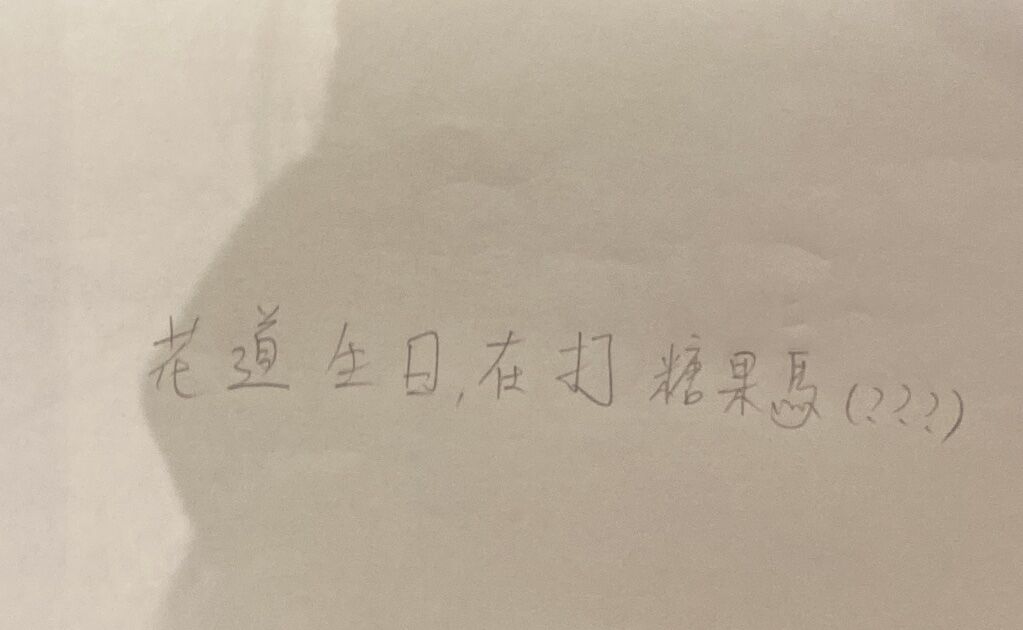 花道生日,在打糖果馬(???)